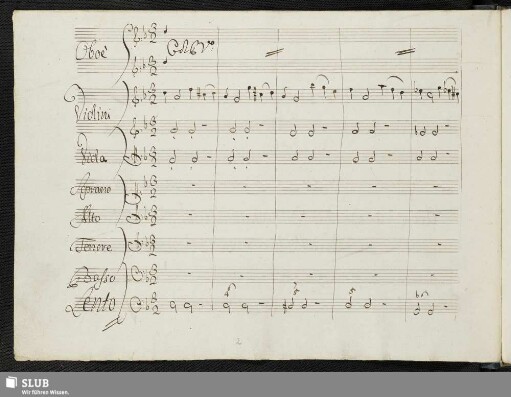 Oboè
Violini
Viola
Soprano
Alto
Tenore
Basso
Lento
SLUB
Wir führen Wissen.